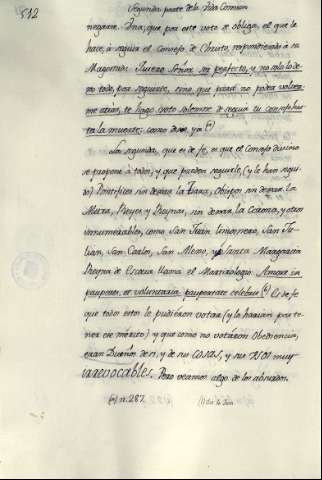 512
Segunda parte de la Vida Comun
negarse. Una, que por este voto se obliga, el que le
hace, à seguir el Consejo de Christo, respondiendo à su
Magestad: Quiero Señor ser perfecto, y no solo lo de
mo todo, por seguirte, sino que para no poder volver
me atras, te hago voto solemne de seguir tu consejo has
ta la muerte; como diré, ya (*)
La segunda, que es de fe, es que el Consejo divino
se propone à todos, y que pueden seguirle, (y le han segui
do) Pontifices sin dejar la Tiara, Obispos sin dejar la
Mitra, Reyes, y Reynas, sin dejar la Corona, y otros
innumerables, como San Juan limosnero, San Ju
lian, San Carlos, San Memo, y Santa Margarita
Reyna de Escocia llama el Martirologio. Amore in
pauperes, et voluntaria paupertate celebris (*) Es de fe
que todos estos lo pudieron votar (y lo harian por te
ner ese mérito) y que como no votáron Obediencia,
eran Dueños de si, y de sus COSAS, y sus VSOS muy
irrevocables. Pero veamos algo de los abusados.
(*) n. 287.